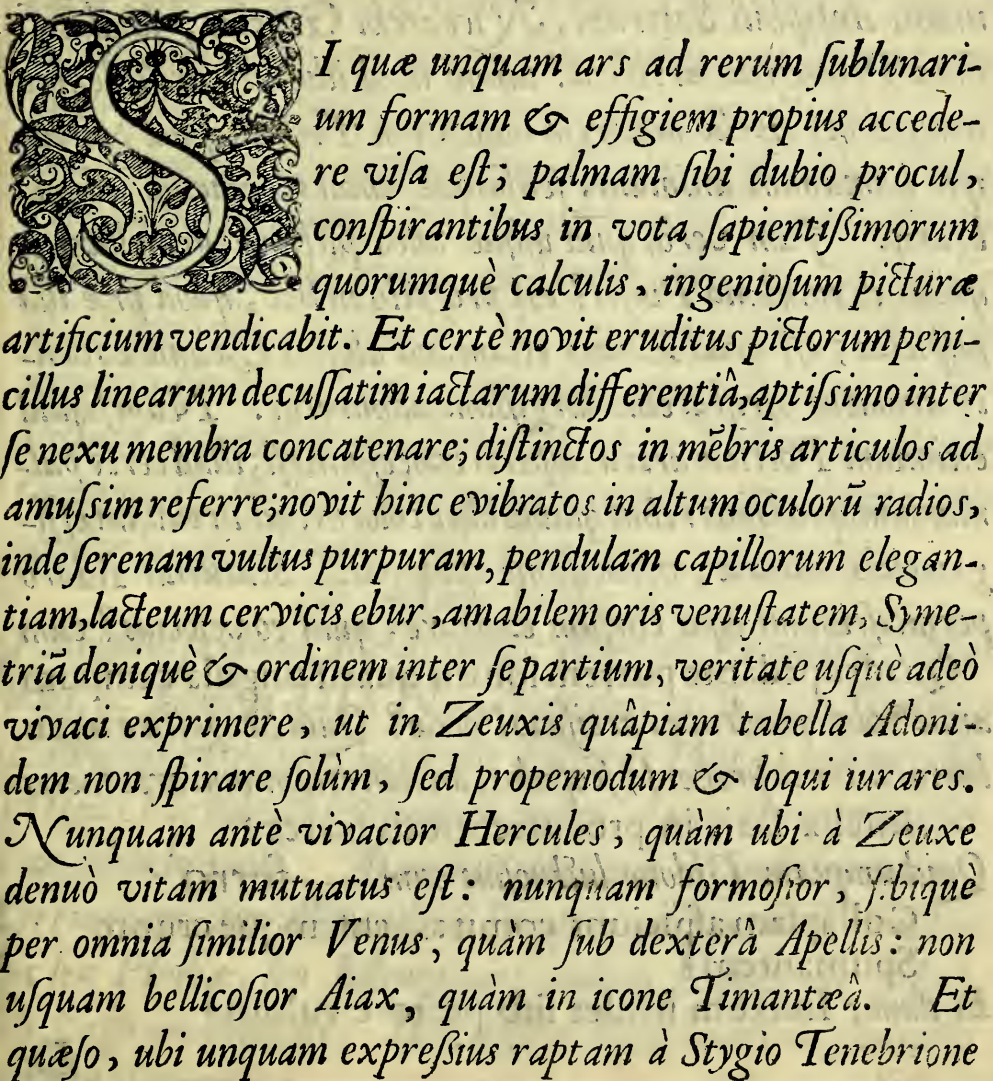 SI quæ unquam ars ad rerum ſublunari-
um formam & effigiem propius accede-
re viſa eſt; palmam ſibi dubio procul,
conſpirantibus in vota ſapientiſſimorum
quorumquè calculis, ingenioſum picturæ
artificium vendicabit. Et certè novit eruditus pictorum peni-
cillus linearum decuſſatim iactarum differentiâ, aptiſsimo inter
ſe nexu membra concatenare; diſtinctos in mẽbris articulos ad
amuſsim referre; novit hinc evibratos in altum oculorũ radios,
inde ſerenam vultus purpuram, pendulam capillorum elegan-
tiam, lacteum cervicis ebur, amabilem oris venuſtatem, Syme-
triã deniquè & ordinem inter ſe partium, veritate uſquè adeò
vivaci exprimere, ut in Zeuxis quâpiam tabella Adoni-
dem non ſpirare ſolùm, ſed propemodum & loqui iurares.
Nunquam antè vivacior Hercules, quàm ubi à Zeuxe
denuò vitam mutuatus eſt: nunquam formoſior, ſibiquè
per omnia ſimilior Venus, quàm ſub dexterâ Apellis: non
uſquam bellicoſior Aiax, quàm in icone Timantæâ. Et
quæſo, ubi unquam expreßius raptam à Stygio Tenebrione